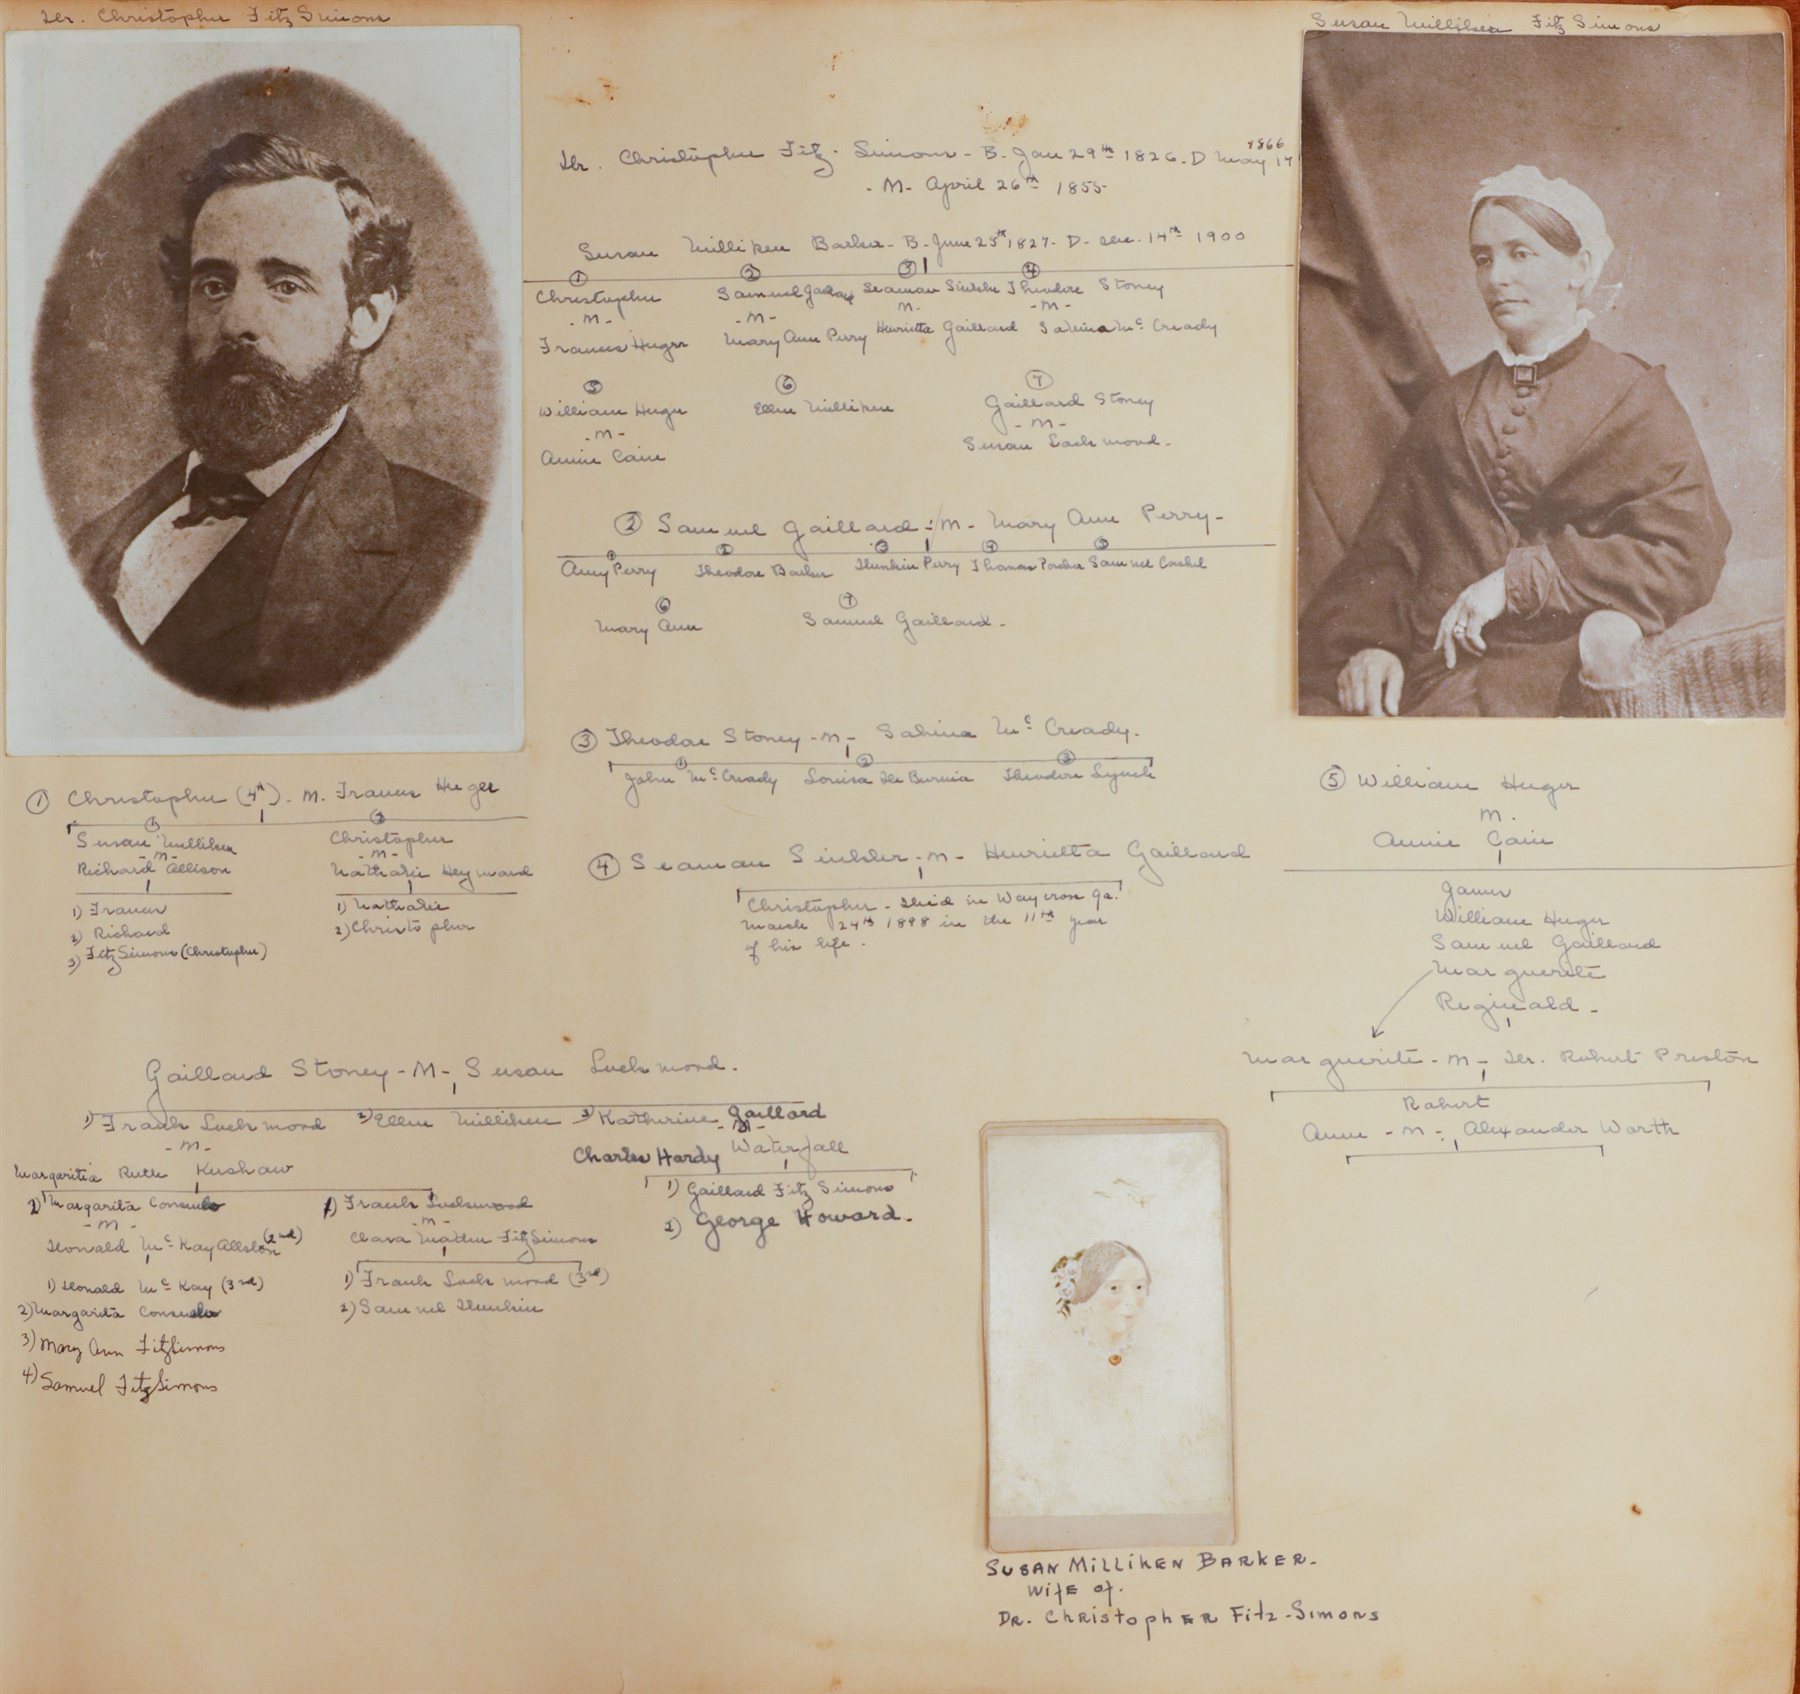 Dr. Christopher Fitz Simons
Susan Milliken Fitz Simons
Dr. Christopher Fitz. Simons - B. Jan 29th 1826. D May 17 1866
- M - April 26th 1855-
Susan Milliken Barker - B - June 25th 1827 - D - Dec. 14th 1900
① ② ③ ④
Christopher Samuel Gaillard Seaman Sinkler Theodore Stoney
- M - - M - M. - M -
Frances Huger Mary Ann Perry Henrietta Gaillard Sabina Mc Cready
⑤ ⑥ ⑦
William Huger Ellen Milliken Gaillard Stoney
- M - - M -
Annie Cain Susan Lockwood -
② Samuel Gaillard - M - Mary Ann Perry -
① ② ③ ④ ⑤
Amy Perry Theodore Barker Dunkin Perry Thomas Porcher Samuel Cashel
⑥ ⑦
Mary Ann Samuel Gaillard -
③ Theodore Stoney - M - Sabina Mc Cready.
① ② ③
John Mc Cready Louisa De Bernia Theodore Lynch
① Christopher (4th) - M. Frances Huger
① ②
Susan Milliken Christopher
- M - - M -
Richard Allison Nathalie Heyward
1) Frances 1) Nathalie
2) Richard 2) Christopher
3) Fitz Simons (Christopher)
④ Seaman Sinkler - M - Henrietta Gaillard
Christopher - Died in Waycross Ga.
March 24th 1898 in the 11th year
of his life.
⑤ William Huger
M.
Annie Cain
James
William Huger
Samuel Gaillard
Marguerite
Reginald -
Marguerite - M - Dr. Robert Preston
Robert
Ann - M - Alexander Worth
Gaillard Stoney - M - Susan Lockwood.
1) Frank Lockwood 2) Ellen Milliken 3) Katherine Gaillard
- M - - M -
Margaritia Ruth Kershaw Charles Hardy Waterfall
2) Margarita Consuelo 1) Frank Lockwood 1) Gaillard Fitz Simons
- M - - M - 2) George Howard.
Donald Mc Kay Allston (2nd) Clara Fitz Simons
1) Donald Mc Kay (3rd) 1) Frank Lockwood (3rd)
2) Margarita Consuelo 2) Samuel Dunkin
3) Mary Ann FitzSimons
4) Samuel FitzSimons
SUSAN MILLIKEN BARKER -
WIFE OF.
DR. CHRISTOPHER FITZ-SIMONS